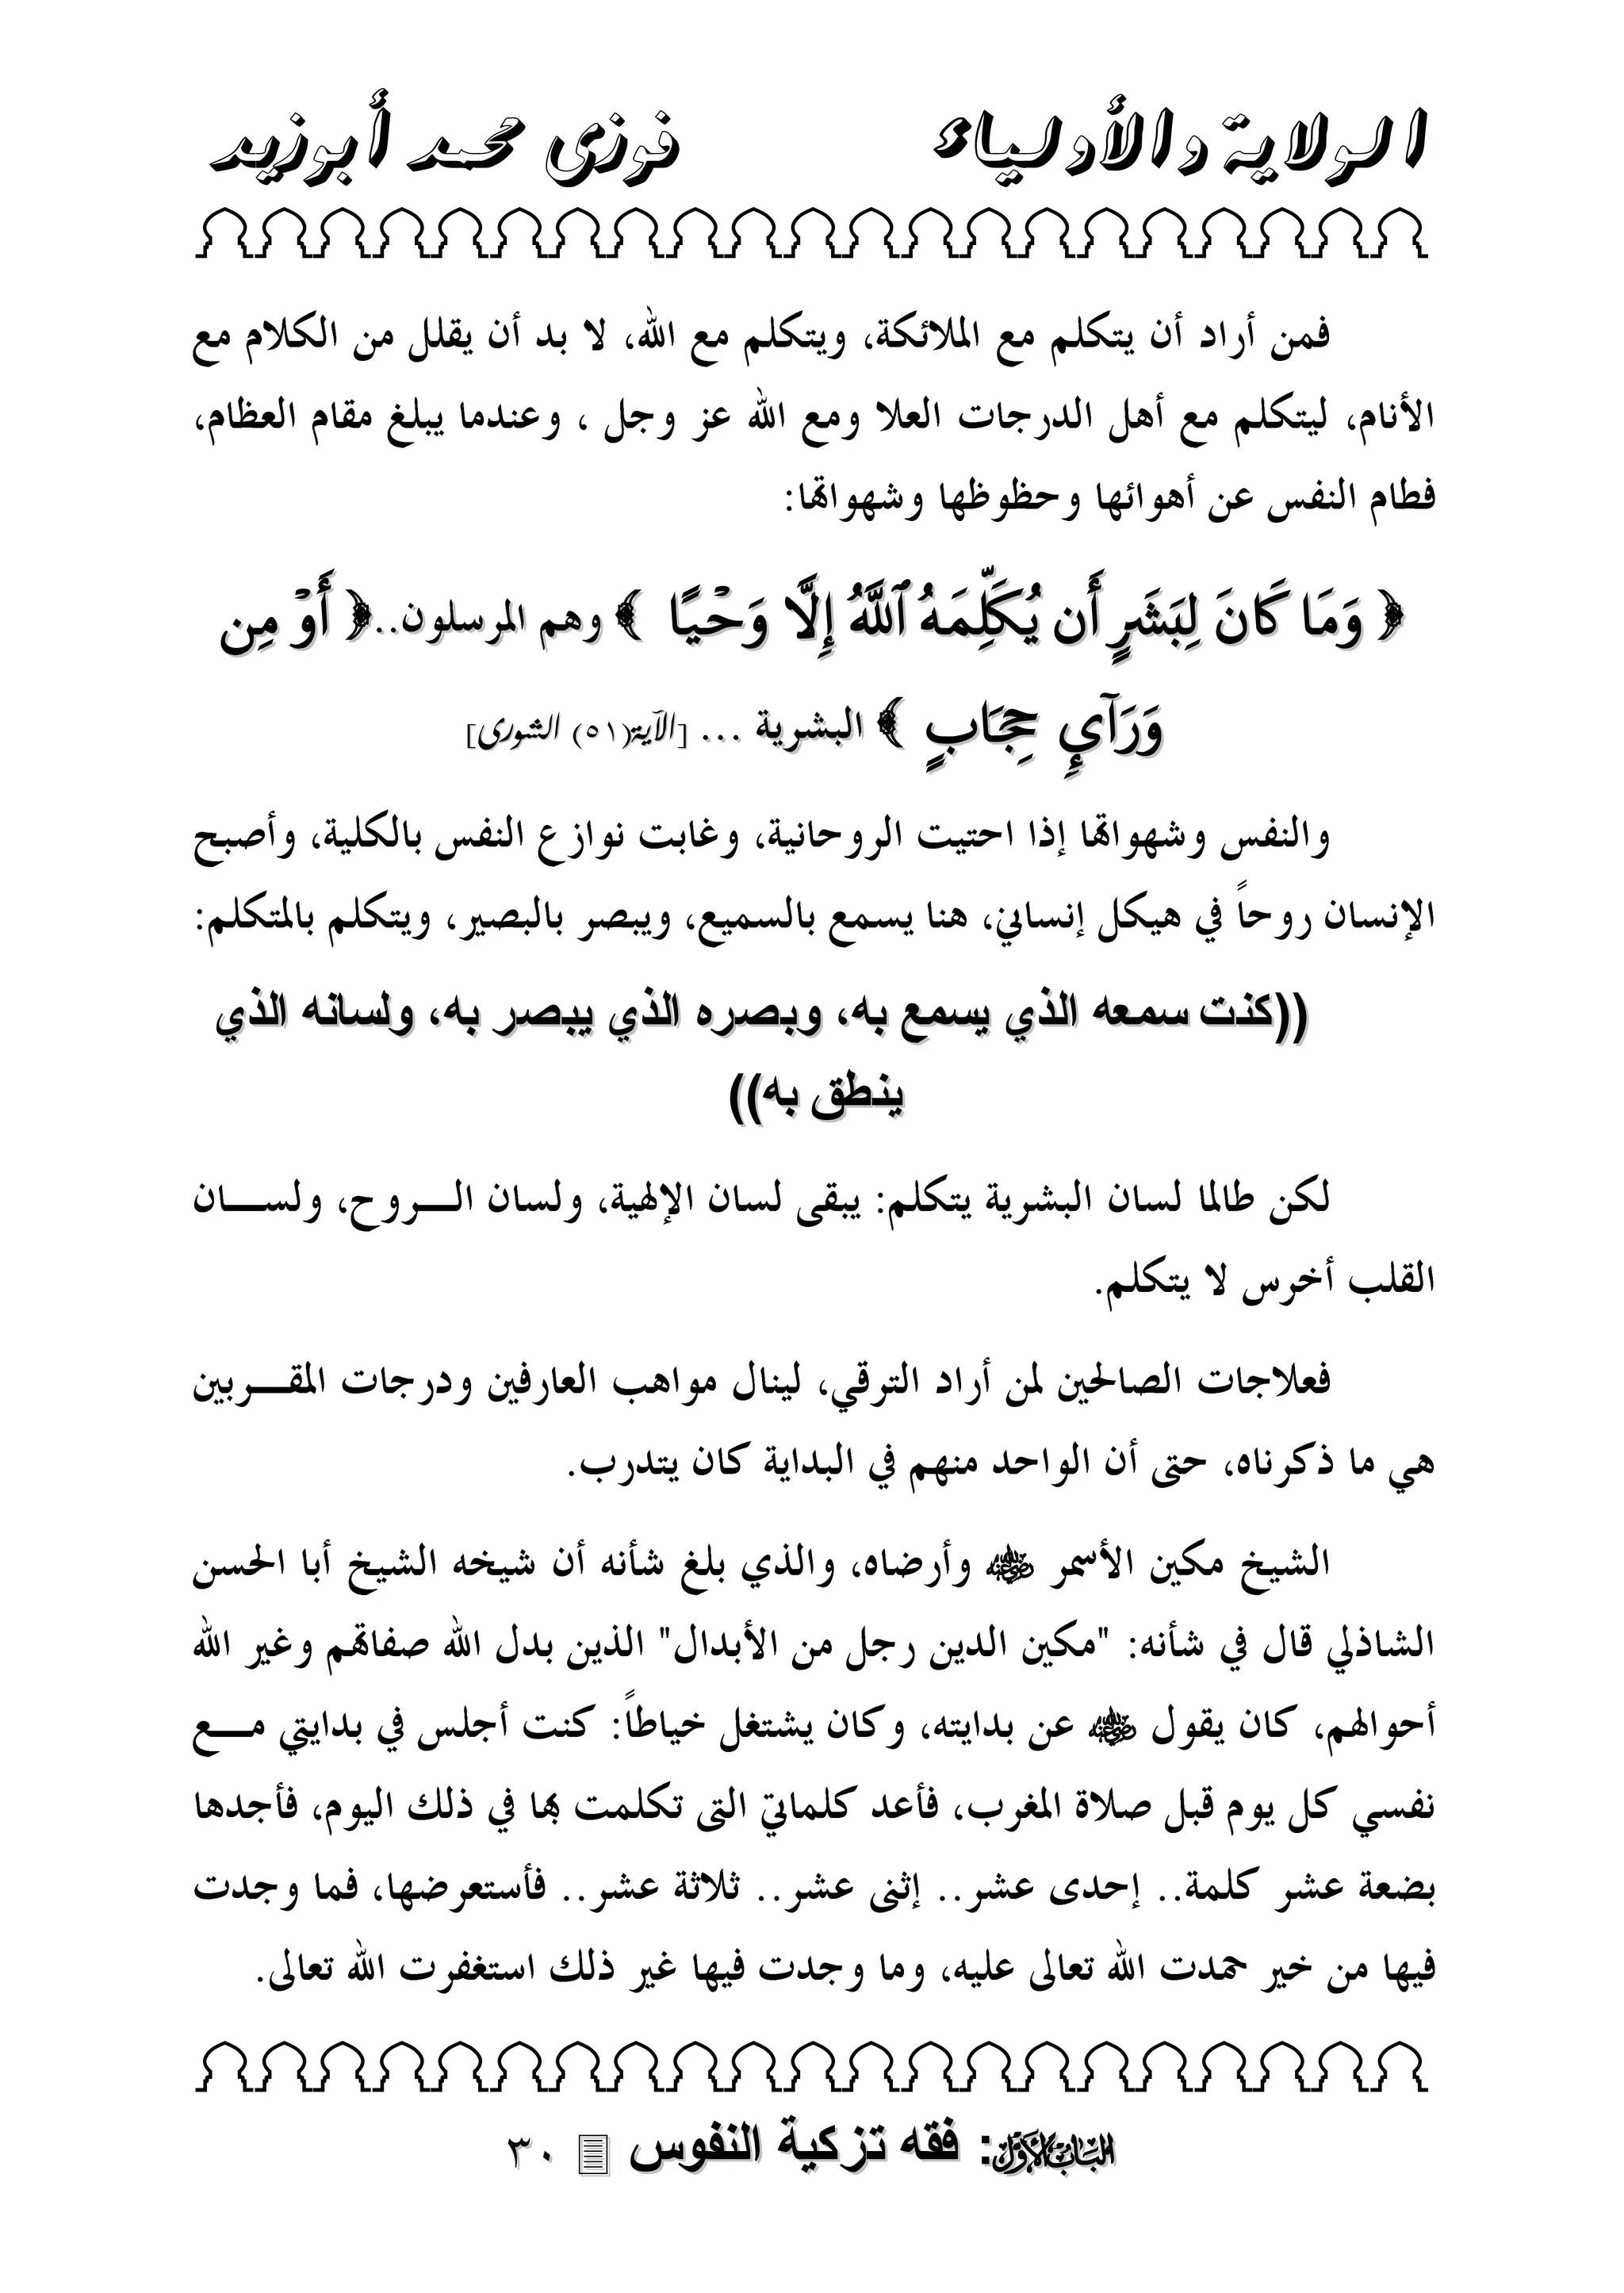 الولاية والأولياء فوزى محمد أبوزيد
فمن أراد أن يتكلم مع الملائكة، ويتكلم مع الله، لا بد أن يقلل من الكلام مع
الأنام، ليتكلم مع أهل الدرجات العلا ومع الله عز وجل ، وعندما يبلغ مقام العظام،
فطام النفس عن أهوائها وحظوظها وشهواتها:
﴿ وَمَا كَانَ لِبَشَرٍ أَن يُكَلِّمَهُ ٱللَّهُ إِلَّا وَحْيًا ﴾ وهم المرسلون..﴿ أَوْ مِن
وَرَآيِٕ حِجَابٍ ﴾ البشرية ... [الآية(٥١) الشورى]
والنفس وشهواتها إذا احتيت الروحانية، وغابت نوازع النفس بالكلية، وأصبح
الإنسان روحاً في هيكل إنساني، هنا يسمع بالسميع، ويبصر بالبصير، ويتكلم بالمتكلم:
((كنت سمعه الذي يسمع به، وبصره الذي يبصر به، ولسانه الذي
ينطق به))
لكن طالما لسان البشرية يتكلم: يبقى لسان الإلهية، ولسان الـــروح، ولســـان
القلب أخرس لا يتكلم.
فعلاجات الصالحين لمن أراد الترقي، لينال مواهب العارفين ودرجات المقـــربين
هي ما ذكرناه، حتى أن الواحد منهم في البداية كان يتدرب.
الشيخ مكين الأسمر رضي الله عنه وأرضاه، والذي بلغ شأنه أن شيخه الشيخ أبا الحسن
الشاذلي قال في شأنه: "مكين الدين رجل من الأبدال" الذين بدل الله صفاتهم وغير الله
أحوالهم، كان يقول رضي الله عنه عن بدايته، وكان يشتغل خياطاً: كنت أجلس في بدايتي مـــع
نفسي كل يوم قبل صلاة المغرب، فأعد كلماتيّ التى تكلمت بها في ذلك اليوم، فأجدها
بضعة عشر كلمة.. إحدى عشر.. إثنى عشر.. ثلاثة عشر.. فأستعرضها، فما وجدت
فيها من خير حمدت الله تعالى عليه، وما وجدت فيها غير ذلك استغفرت الله تعالى.
الباب الأول: فقه تزكية النفوس ٣٠